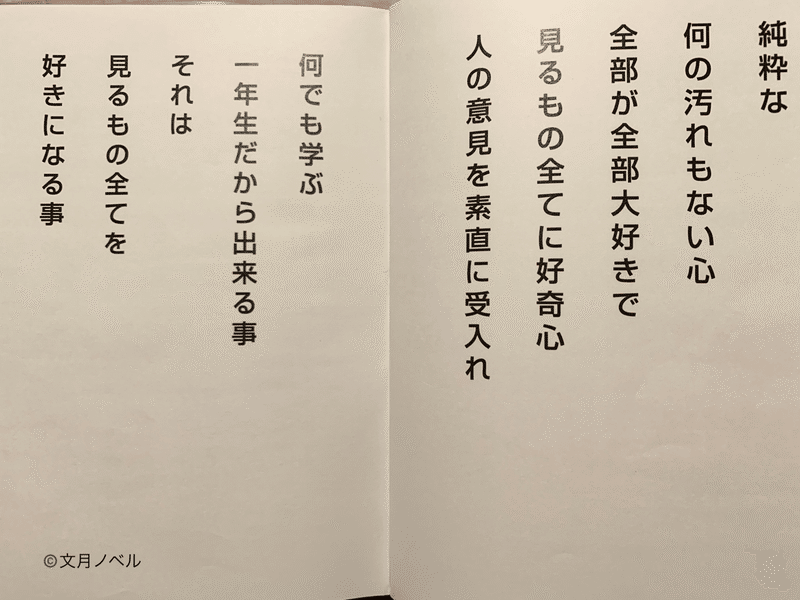 純粋な
何の汚れもない心
全部が全部大好きで
見るもの全てに好奇心
人の意見を素直に受入れ
何でも学ぶ
一年生だから出来る事
それは
見るもの全てを
好きになる事
©文月ノベル